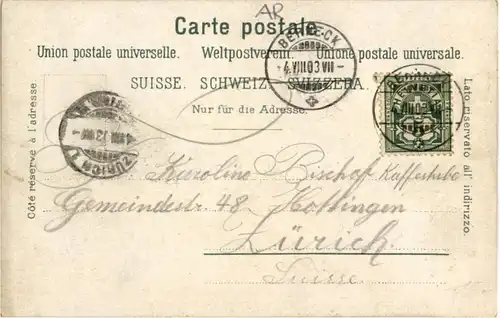 AR
Carte postale.
Union postale universelle. Weltpostverein. Unione postale universale.
SUISSE. SCHWEIZ. SVIZZERA.
Nur für die Adresse.
Côté réservé à l'adresse
Lato riservato all' indirizzo.
BERNECK
4.VIII.03.VII
ZÜRICH
Karoline Bischof Kaffeehalle
Gemeindestr. 48 Hottingen
Zürich.
Suisse.